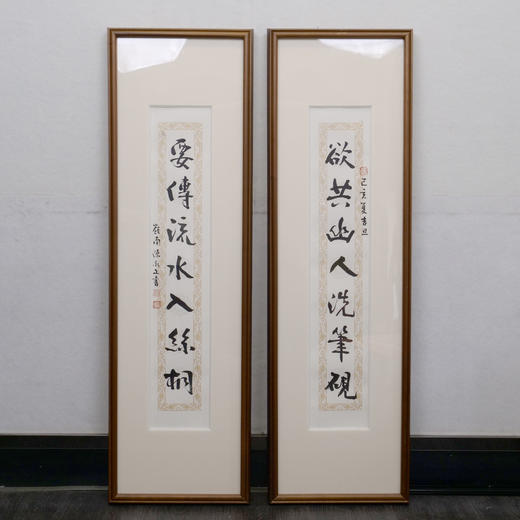 己亥夏吉旦
欲共幽人洗筆硯
要傳流水入絲桐
嶺南
書